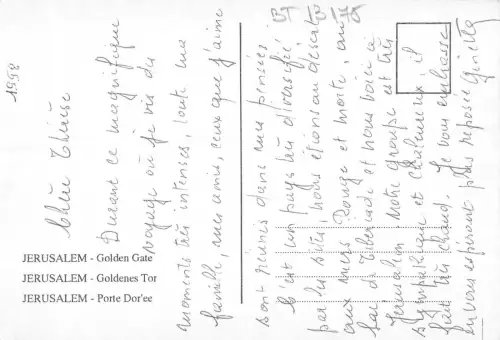 1998
Chère Thérèse
Durant ce magnifique
voyage où je vis des
moments très intenses, toute ma
famille, mes amis, ceux que j'aime
sont présents dans mes pensées
C'est un pays très diversifié
par les sites nous étions au désert
aux mers Rouge et morte, au
lac de Tibériade et nous voici à
Jérusalem. Notre groupe est très
sympathique et chaleureux il
fait très chaud. Je vous embrasse
en vous espérant plus reposée Ginette
JERUSALEM - Golden Gate
JERUSALEM - Goldenes Tor
JERUSALEM - Porte Dor'ee